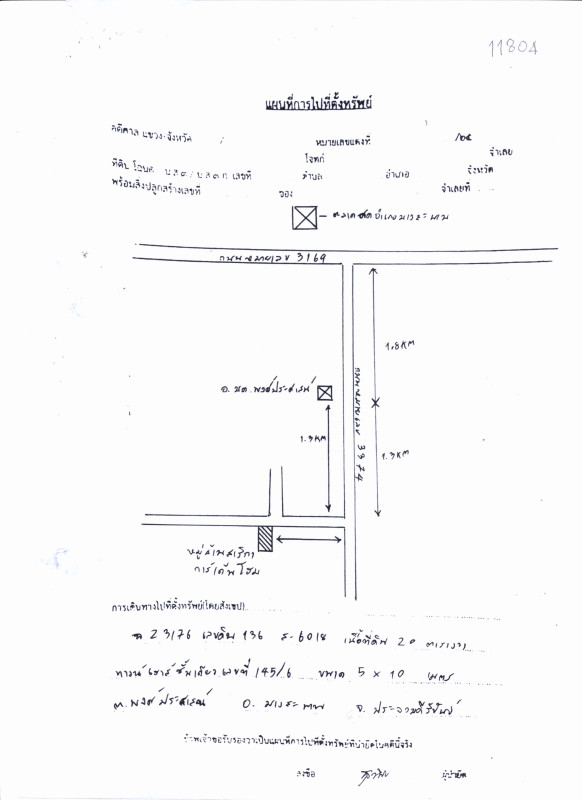 11804
แผนที่การไปที่ตั้งทรัพย์
คดีศาล แขวง-จังหวัด / หมายเลขแดงที่ /๒๕
โจทก์ จำเลย
ที่ดิน โฉนด น.ส.๓ / น.ส.๓ ก. เลขที่ ตำบล อำเภอ จังหวัด
พร้อมสิ่งปลูกสร้างเลขที่ ของ จำเลยที่
ถนนหมายเลข 3169
1.8 KM
อ.บ.ต. พงศ์ประศาสน์
ถนนหมายเลข 3374
1.3 KM
1.3 KM
หมู่บ้าน
การ์เด้น โฮม
การเดินทางไปที่ตั้งทรัพย์(โดยสังเขป)
ฉ 23176 เลขดิน 136 ส-6018 เนื้อที่ดิน 20 ตารางวา
ทาวน์เฮาส์ชั้นเดียว เลขที่ 145/6 ขนาด 5 x 10 เมตร
ต. พงศ์ประศาสน์ อ. บางสะพาน จ. ประจวบคีรีขันธ์
ข้าพเจ้าขอรับรองว่าเป็นแผนที่การไปที่ตั้งทรัพย์ที่นำยึดในคดีนี้จริง
ลงชื่อ ผู้นำยึด